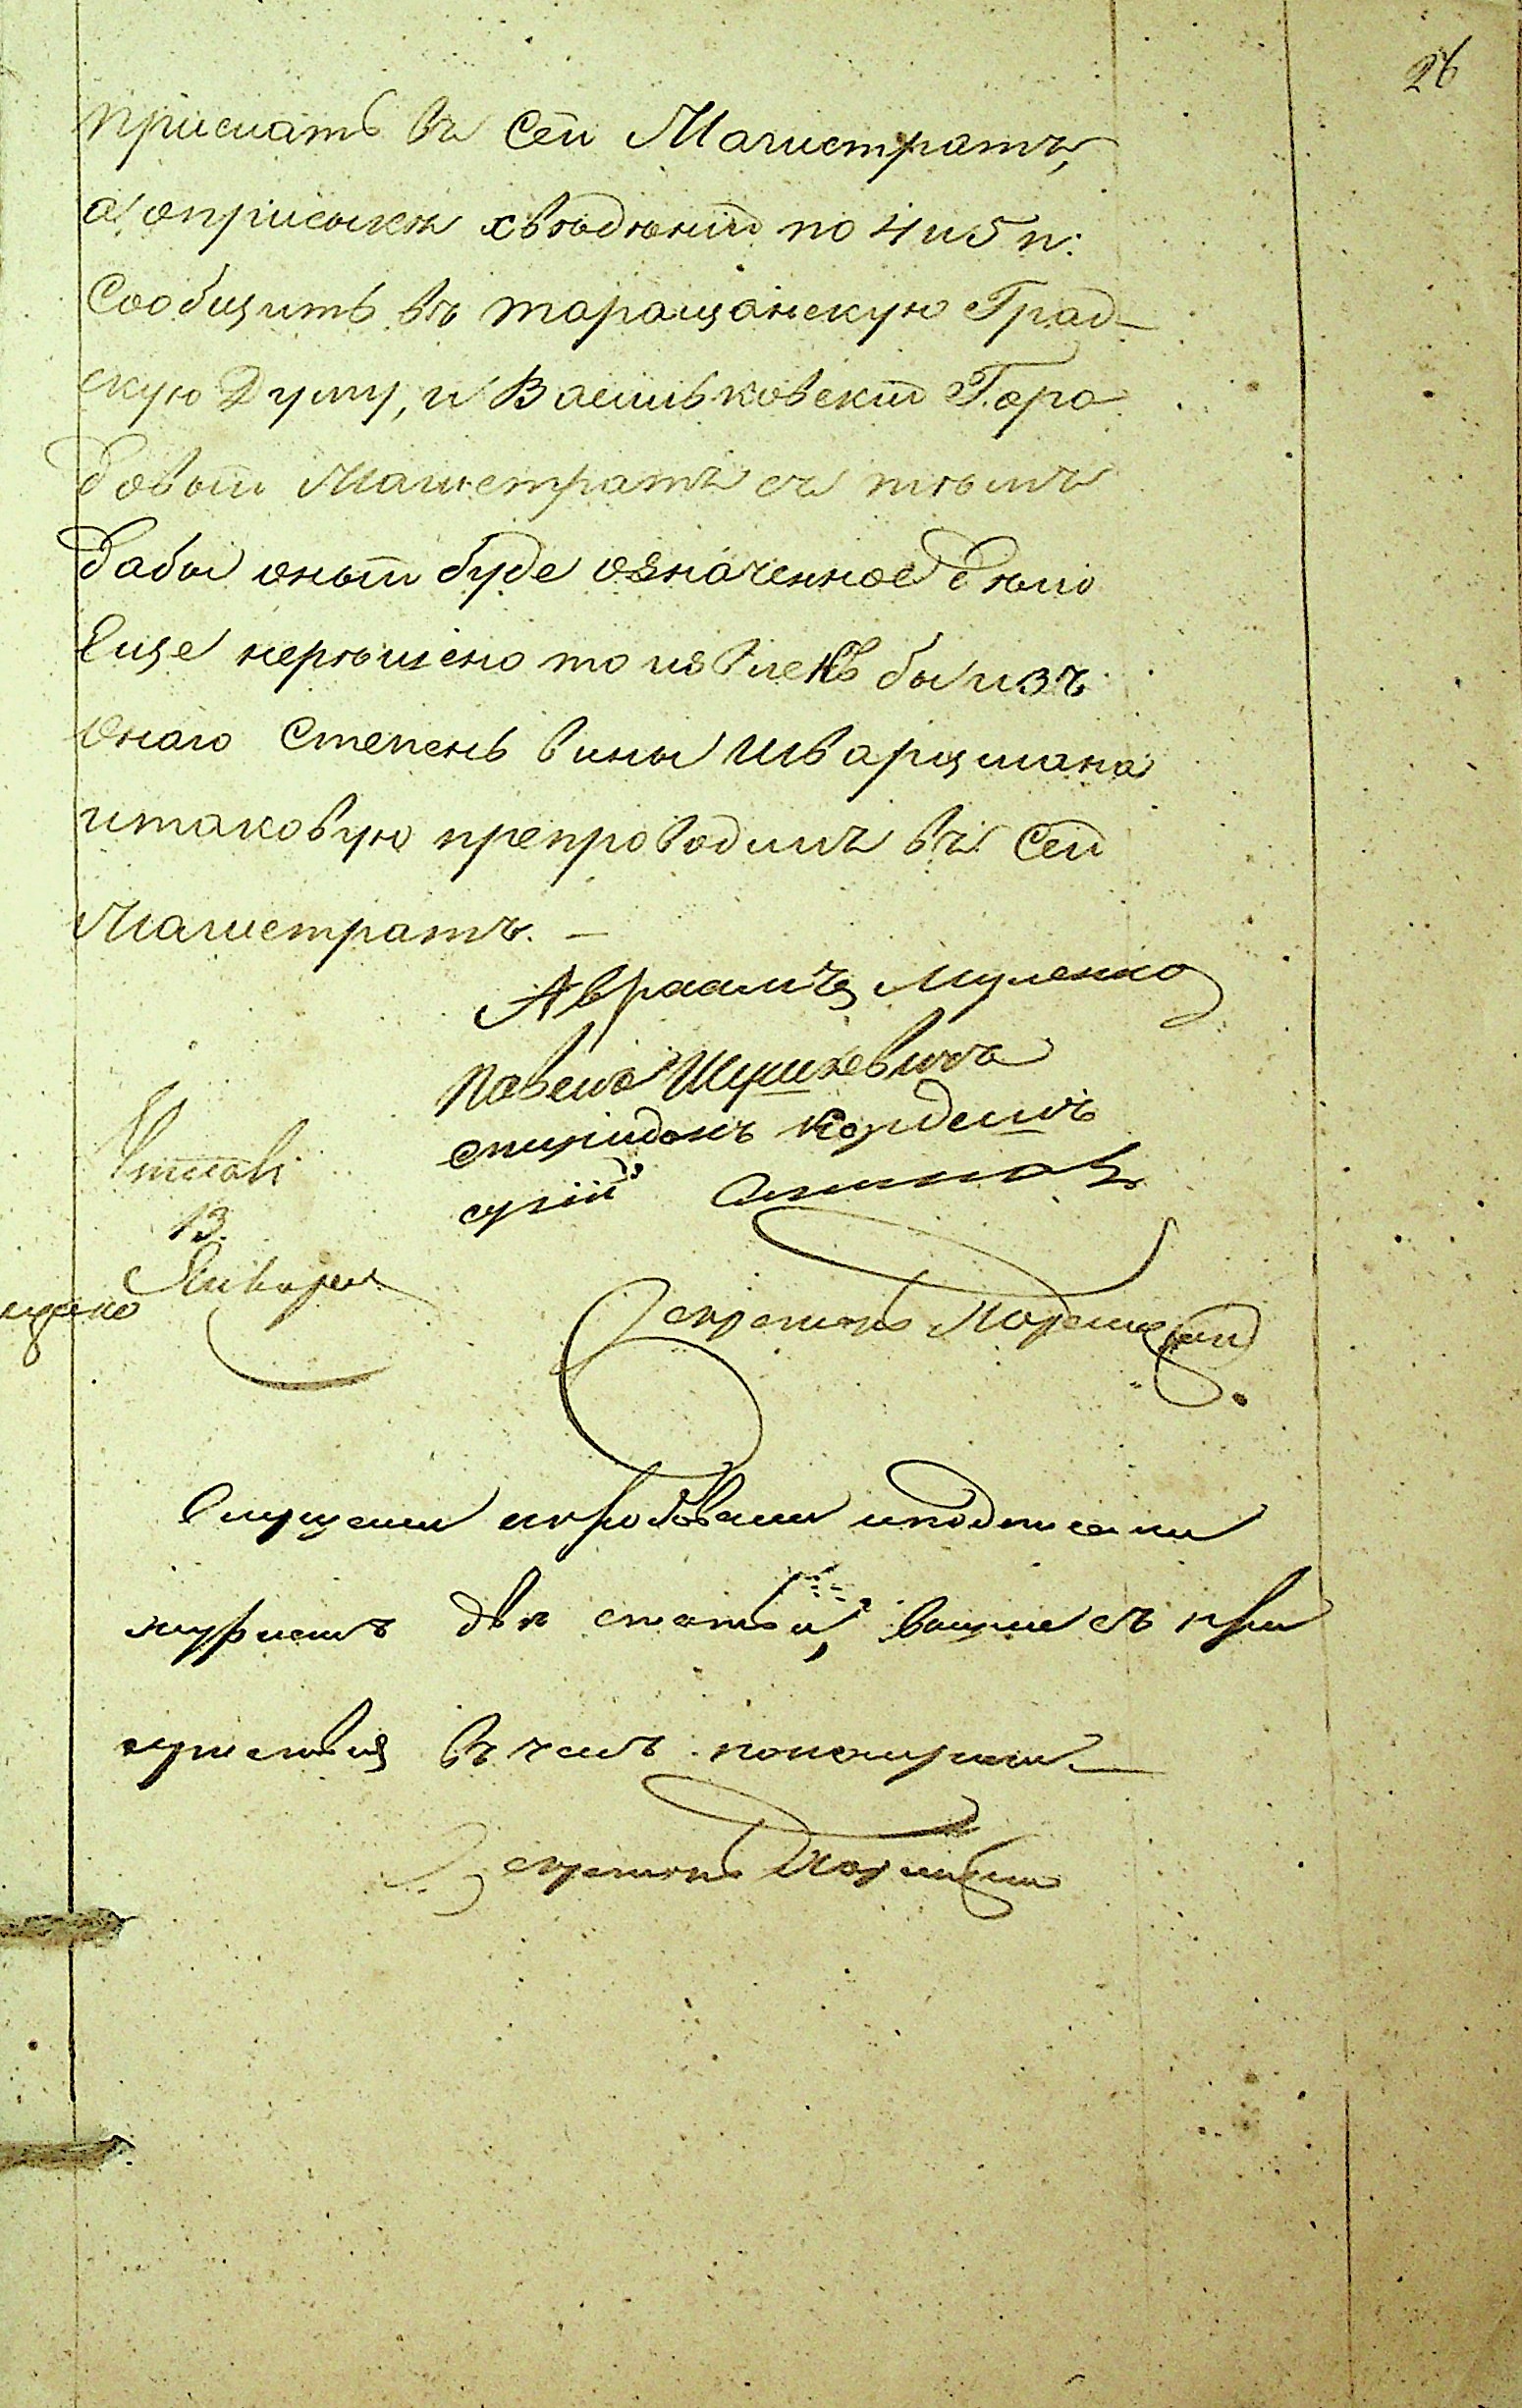 26
прислать въ сей Магистратъ,
а оприсылкѣ свѣдѣній по 4 и 5 п:
Сообщить въ таращанскую Град-
скую Думу, и Васильковский Горо
довый Магистратъ съ тѣмъ
дабы оный буде означенное дѣло
Еще нерѣшено то извлекъ бы изъ
Онаго Степень вины Шварцмана
и таковую препроводилъ въ Сей
Магистратъ. —
Авраамъ Муленко
Павелъ Шушкевичъ
спиридонъ
13.
Января
Секретарь
Слушали и подписали
журналъ двѣ статьи, при
въ часъ пополудни
Секретарь